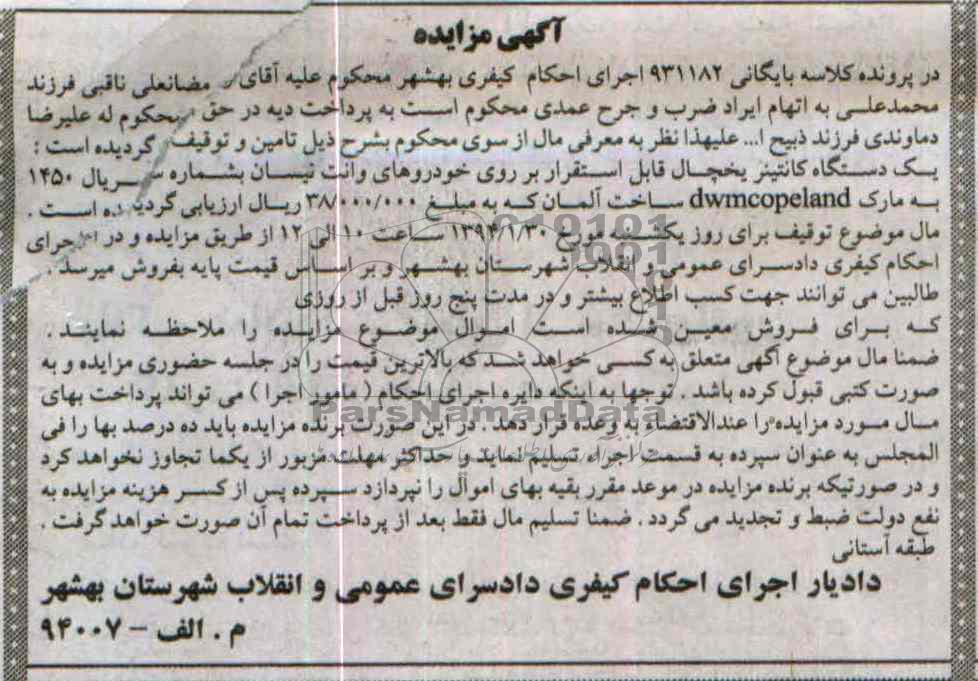 آگهی مزایده
در پرونده کلاسه بایگانی ۹۳۱۱۸۲ اجرای احکام کیفری بهشهر محکوم علیه آقای مضانعلی ناقبی فرزند
محمدعلی به اتهام ایراد ضرب و جرح عمدی محکوم است به پرداخت دیه در حق محکوم له علیرضا
دماوندی فرزند ذبیح ا... علیهذا نظر به معرفی مال از سوی محکوم بشرح ذیل تامین و توقیف گردیده است :
یک دستگاه کانتینر یخچال قابل استقرار بر روی خودروهای وانت نیسان بشماره سریال ۱۴۵۰
به مارک dwmcopeland ساخت آلمان که به مبلغ ۳۸/۰۰۰/۰۰۰ ریال ارزیابی گردیده است .
مال موضوع توقیف برای روز یکشنبه مورخ ۱۳۹۴/۱/۳۰ ساعت ۱۰ الی ۱۲ از طریق مزایده و در اجرای
احکام کیفری دادسرای عمومی و انقلاب شهرستان بهشهر و بر اساس قیمت پایه بفروش میرسد .
طالبین می توانند جهت کسب اطلاع بیشتر و در مدت پنج روز قبل از روزی
که برای فروش معین شده است اموال موضوع مزایده را ملاحظه نمایند .
ضمنا مال موضوع آگهی متعلق به کسی خواهد شد که بالاترین قیمت را در جلسه حضوری مزایده و به
صورت کتبی قبول کرده باشد . توجها به اینکه دایره اجرای احکام ( مامور اجرا ) می تواند پرداخت بهای
مال مورد مزایده را عندالاقتضاء به وعده قرار دهد . در این صورت برنده مزایده باید ده درصد بها را فی
المجلس به عنوان سپرده به قسمت اجراء تسلیم نماید و حداکثر مهلت مزبور از یکما تجاوز نخواهد کرد
و در صورتیکه برنده مزایده در موعد مقرر بقیه بهای اموال را نپردازد سپرده پس از کسر هزینه مزایده به
نفع دولت ضبط و تجدید می گردد . ضمنا تسلیم مال فقط بعد از پرداخت تمام آن صورت خواهد گرفت .
طبقه آستانی
دادیار اجرای احکام کیفری دادسرای عمومی و انقلاب شهرستان بهشهر
م . الف – ۹۴۰۰۷
ParsNamadData